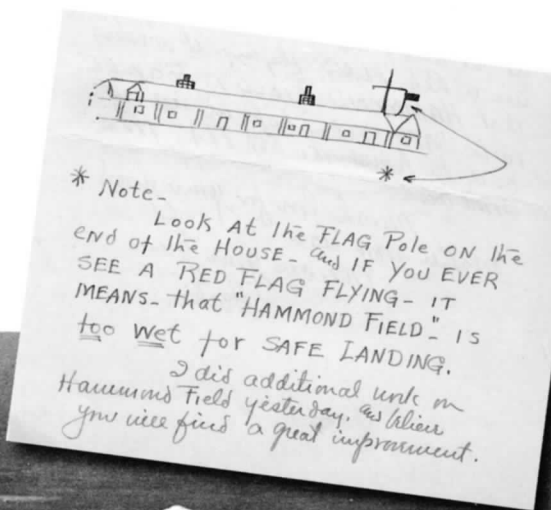 * Note-
Look At the FLAG Pole ON the
end of the HOUSE- and IF YOU EVER
SEE A RED FLAG FLYING- IT
MEANS- that "HAMMOND FIELD"- IS
too wet for SAFE LANDING.
I did additional work on
Hammond Field yesterday. and believe
you will find a great improvment.